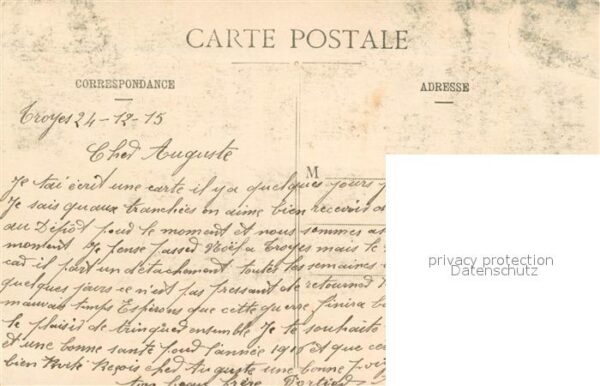 CARTE POSTALE
CORRESPONDANCE
ADRESSE
Troyes 24-12-15
Cher Auguste
M
Je tai écrit une carte il y a quelques jours
Je sais quaux tranchées on aime bien recevoir
au Dépôt pour le moment et nous sommes
moment Je pense passer Noël a Troyes mais
car il part un détachement toutes les semaines
quelques jours ce n'est pas pressant de retourner
mauvais temps Espérons que cette guerre finira
le plaisir de trinquer ensemble Je te souhaite
et une bonne santé pour l'année 1916 et que
bien Reçois cher Auguste une bonne
ton beau frère
privacy protection
Datenschutz